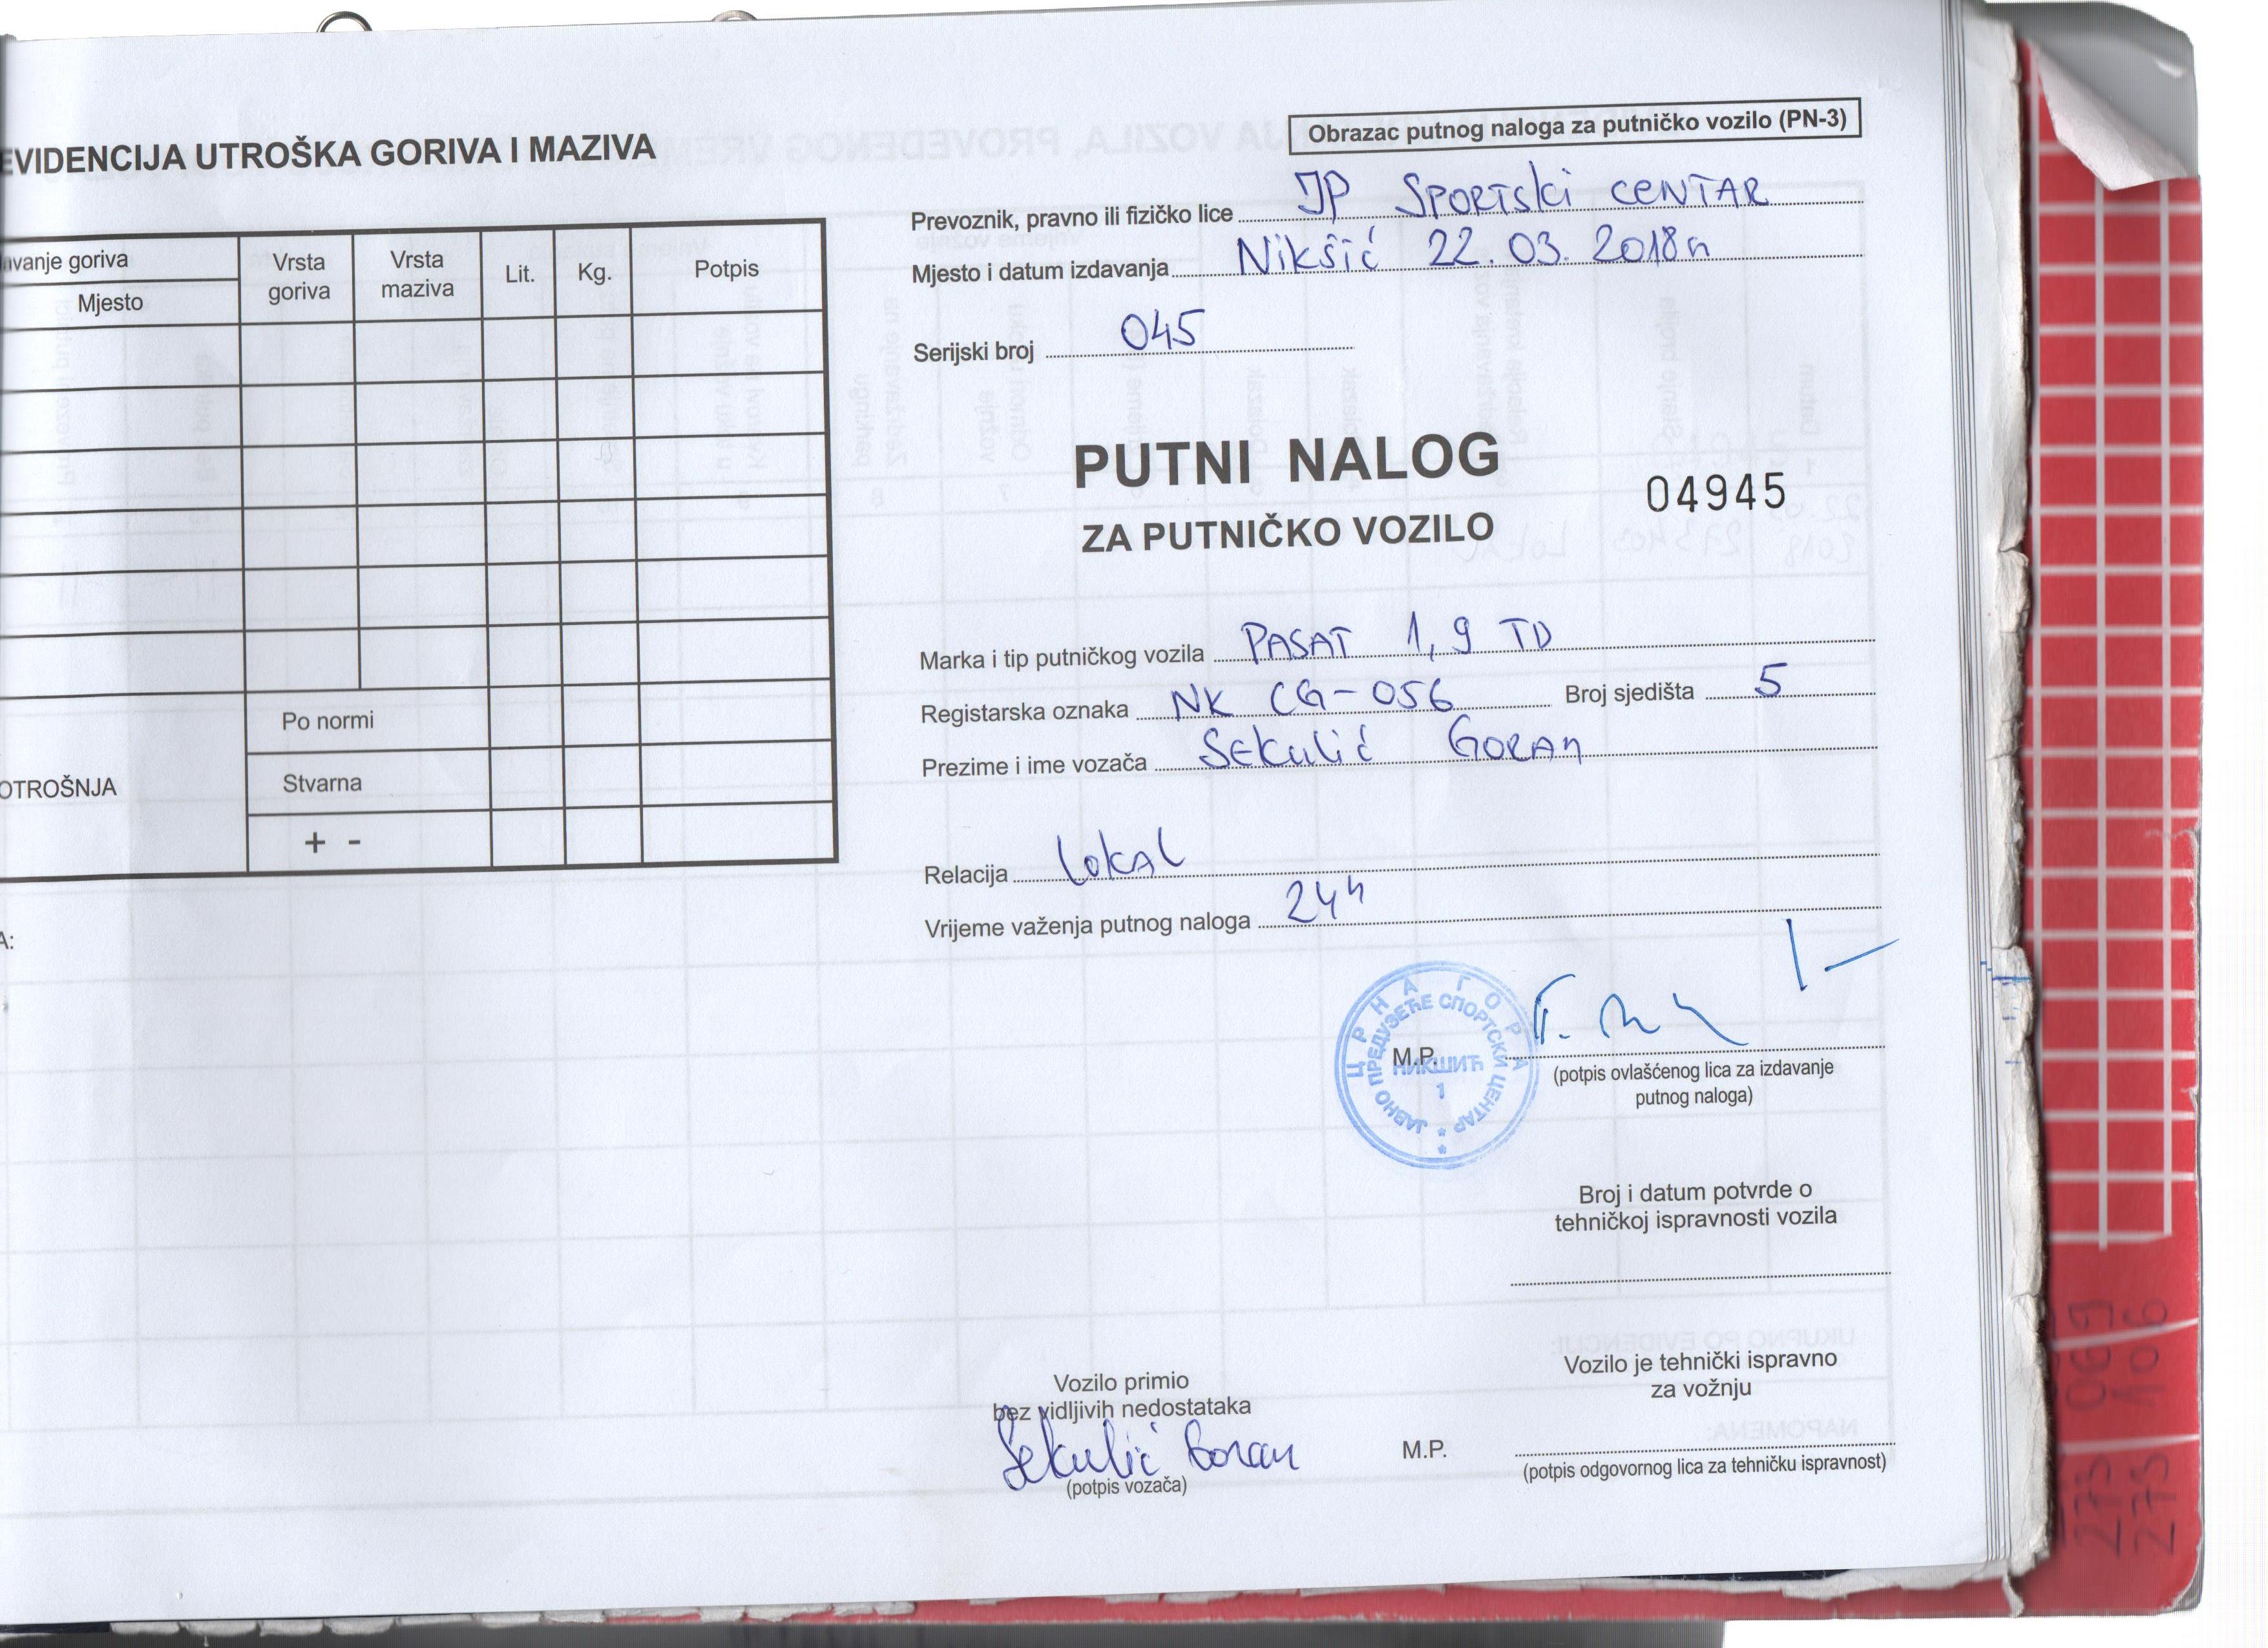 EVIDENCIJA UTROŠKA GORIVA I MAZIVA
avanje goriva
Mjesto
Vrsta goriva
Vrsta maziva
Lit.
Kg.
Potpis
Po normi
OTROŠNJA
Stvarna
+ -
A:
Obrazac putnog naloga za putničko vozilo (PN-3)
Prevoznik, pravno ili fizičko lice JP SPORTSki CENTAR
Mjesto i datum izdavanja Nikšić 22.03.2018
Serijski broj 045
PUTNI NALOG
04945
ZA PUTNIČKO VOZILO
Marka i tip putničkog vozila PASAT 1,9 TD
Registarska oznaka NK CG-056 Broj sjedišta 5
Prezime i ime vozača SEkulić GORAN
Relacija lokAl
Vrijeme važenja putnog naloga 24h
ЦРНА ГОРА
ЈАВНО ПРЕДУЗЕЋЕ СПОРТСКИ ЦЕНТАР
НИКШИЋ
1
M.P.
(potpis ovlašćenog lica za izdavanje
putnog naloga)
Broj i datum potvrde o
tehničkoj ispravnosti vozila
Vozilo primio
bez vidljivih nedostataka
Sekulić Goran
(potpis vozača)
Vozilo je tehnički ispravno
za vožnju
M.P.
(potpis odgovornog lica za tehničku ispravnost)